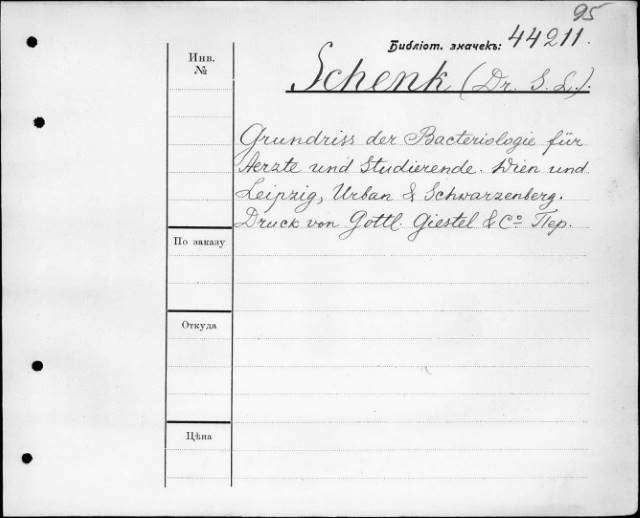 95
Библіот. значекъ: 44211.
Инв.
№
Schenk (Dr. S. L.).
Grundriss der Bacteriologie für
Aerzte und Studierende. Wien und
Leipzig, Urban & Schwarzenberg.
Druck von Gottl. Giestel & Cº Пер.
По заказу
Откуда
Цѣна